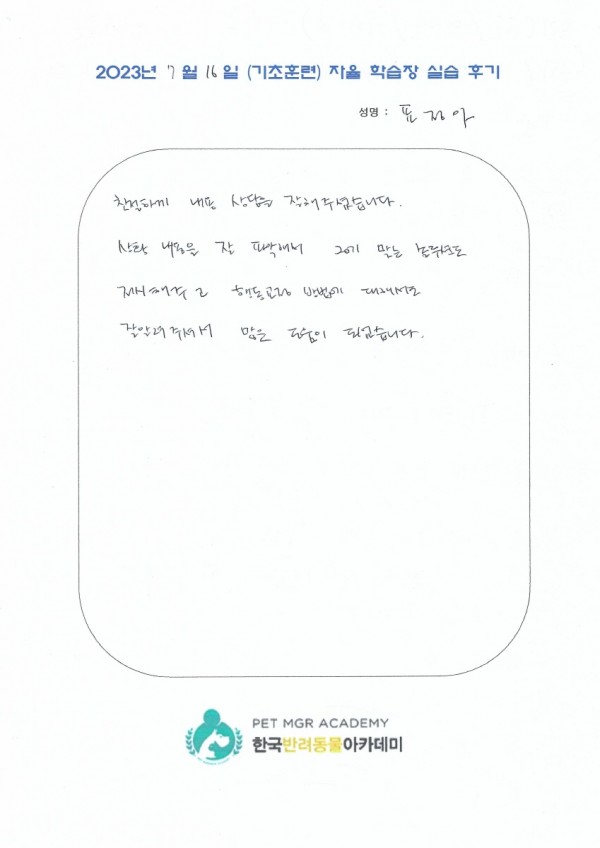 2023년 7월 16일 (기초훈련) 자율 학습장 실습 후기
성명 : 표정아
친절하게 내용 상담을 잘해주셨습니다.
상황 내용을 잘 파악해서 그에 맞는 솔루션도
제시해주고 행동교정 방법에 대해서도
잘알려주셔서 많은 도움이 되었습니다.
PET MGR ACADEMY
한국반려동물아카데미